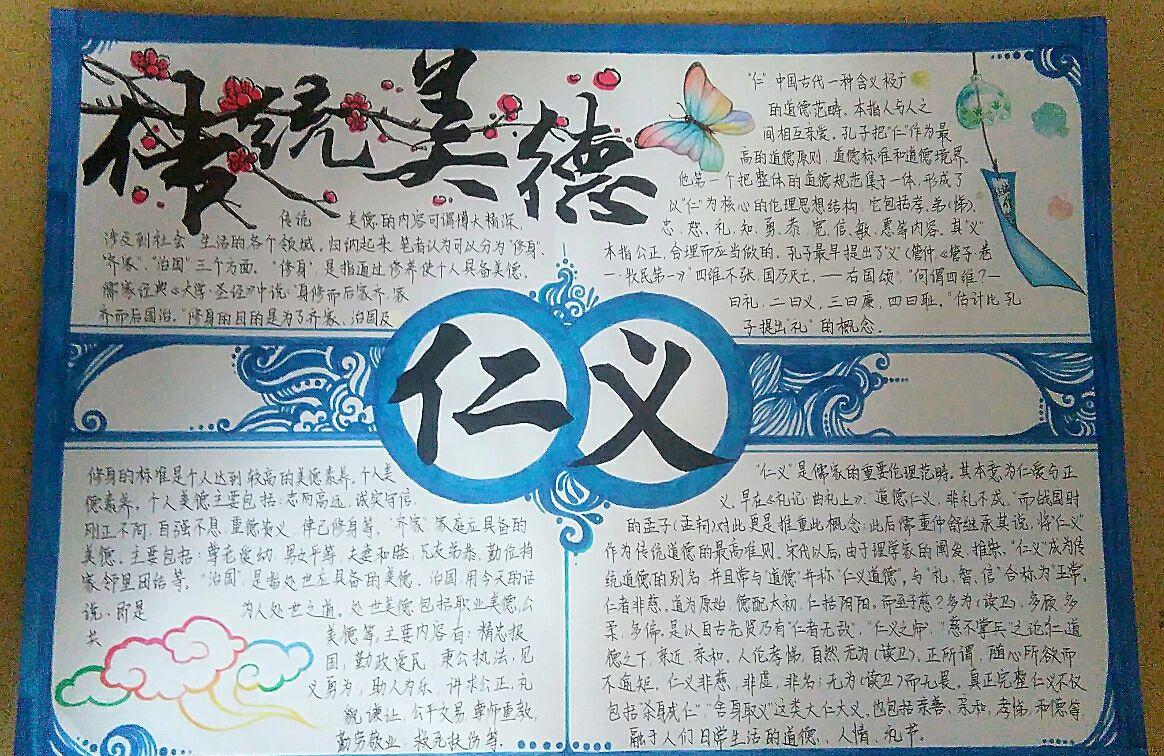 传统美德
传统 美德的内容可谓博大精深,
涉及到社会 生活的各个领域,归纳起来,笔者认为可以分为“修身”、
“齐家”、“治国”三个方面。“修身”,是指通过修养使个人具备美德。
儒家经典《大学·圣经》中说:身修而后家齐,家
齐而后国治。“修身的目的是为了齐家、治国及
“仁”中国古代一种含义极广
的道德范畴。本指人与人之
间相互亲爱。孔子把“仁”作为最
高的道德原则、道德标准和道德境界。
他第一个把整体的道德规范集于一体,形成了
以“仁”为核心的伦理思想结构,它包括孝、弟(悌)、
忠、恕、礼、知、勇、恭、宽、信、敏、惠等内容。其“义”
本指公正、合理而应当做的。孔子最早提出了“义”(管仲《管子·卷
一·牧民第一》“四维不张,国乃灭亡,——右国颂”,“何谓四维?—
曰礼,二曰义,三曰廉,四曰耻。”估计比孔
子提出“礼”的概念。
仁义
修身的标准是个人达到较高的美德素养。个人美
德素养。个人美德主要包括:志向高远,诚实守信,
刚正不阿,自强不息,重德贵义,律己修身等,“齐家”家庭应具备的
美德。主要包括:尊老爱幼,男女平等,夫妻和睦,兄友弟恭,勤俭持
家,邻里团结等。“治国”,是指处世应具备的美德。治国,用今天的话
说,即是 为人处世之道。处世美德包括职业美德,公
共 美德等,主要内容有:精忠报
国,勤政爱民,秉公执法,见
义勇为,助人为乐,讲求公正,礼
貌谦让,公平交易,尊师重教,
勤劳敬业,救死扶伤等。
“仁义”是儒家的重要伦理范畴。其本意为仁爱与正
义。早在《礼记·曲礼上》:“道德仁义,非礼不成,”而战国时
的孟子(孟轲)对此更是推重此概念;此后儒董仲舒继承其说,将“仁义”
作为传统道德的最高准则。宋代以后,由于理学家的阐发、推崇,“仁义”成为传
统道德的别名,并且常与“道德”并称“仁义道德”,与“礼、智、信”合称为“五常”。
仁者非慈。道为原始,德配太初,仁括阴阳。而至于慈?多为(读卫),多顾,多
柔,多偏。是以自古先贤乃有“仁者无敌”,“仁义之师”,“慈不掌兵”之论。仁,道
德之下,亲近,亲和,人伦孝悌,自然无为(读卫)。正所谓,随心所欲而
不逾矩。仁义非慈,非虚,非名;无为(读卫)而无畏。真正完整仁义不仅
包括“杀身成仁”“舍身取义”这类大仁大义,也包括亲善,亲和,孝悌,和德等
融于人们日常生活的道德、人情、礼节。